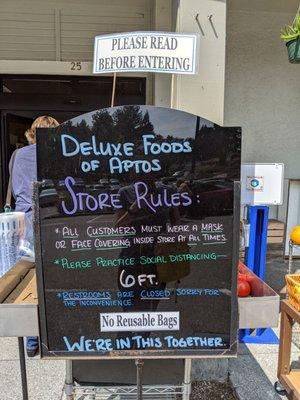 PLEASE READ
BEFORE ENTERING
25
DELUXE FOODS
OF APTOS
STORE RULES:
* ALL CUSTOMERS MUST WEAR A MASK
OR FACE COVERING INSIDE STORE AT ALL TIMES.
* PLEASE PRACTICE SOCIAL DISTANCING—
6 FT.
* RESTROOMS ARE CLOSED SORRY FOR
THE INCONVENIENCE.
No Reusable Bags
WE'RE IN THIS TOGETHER.